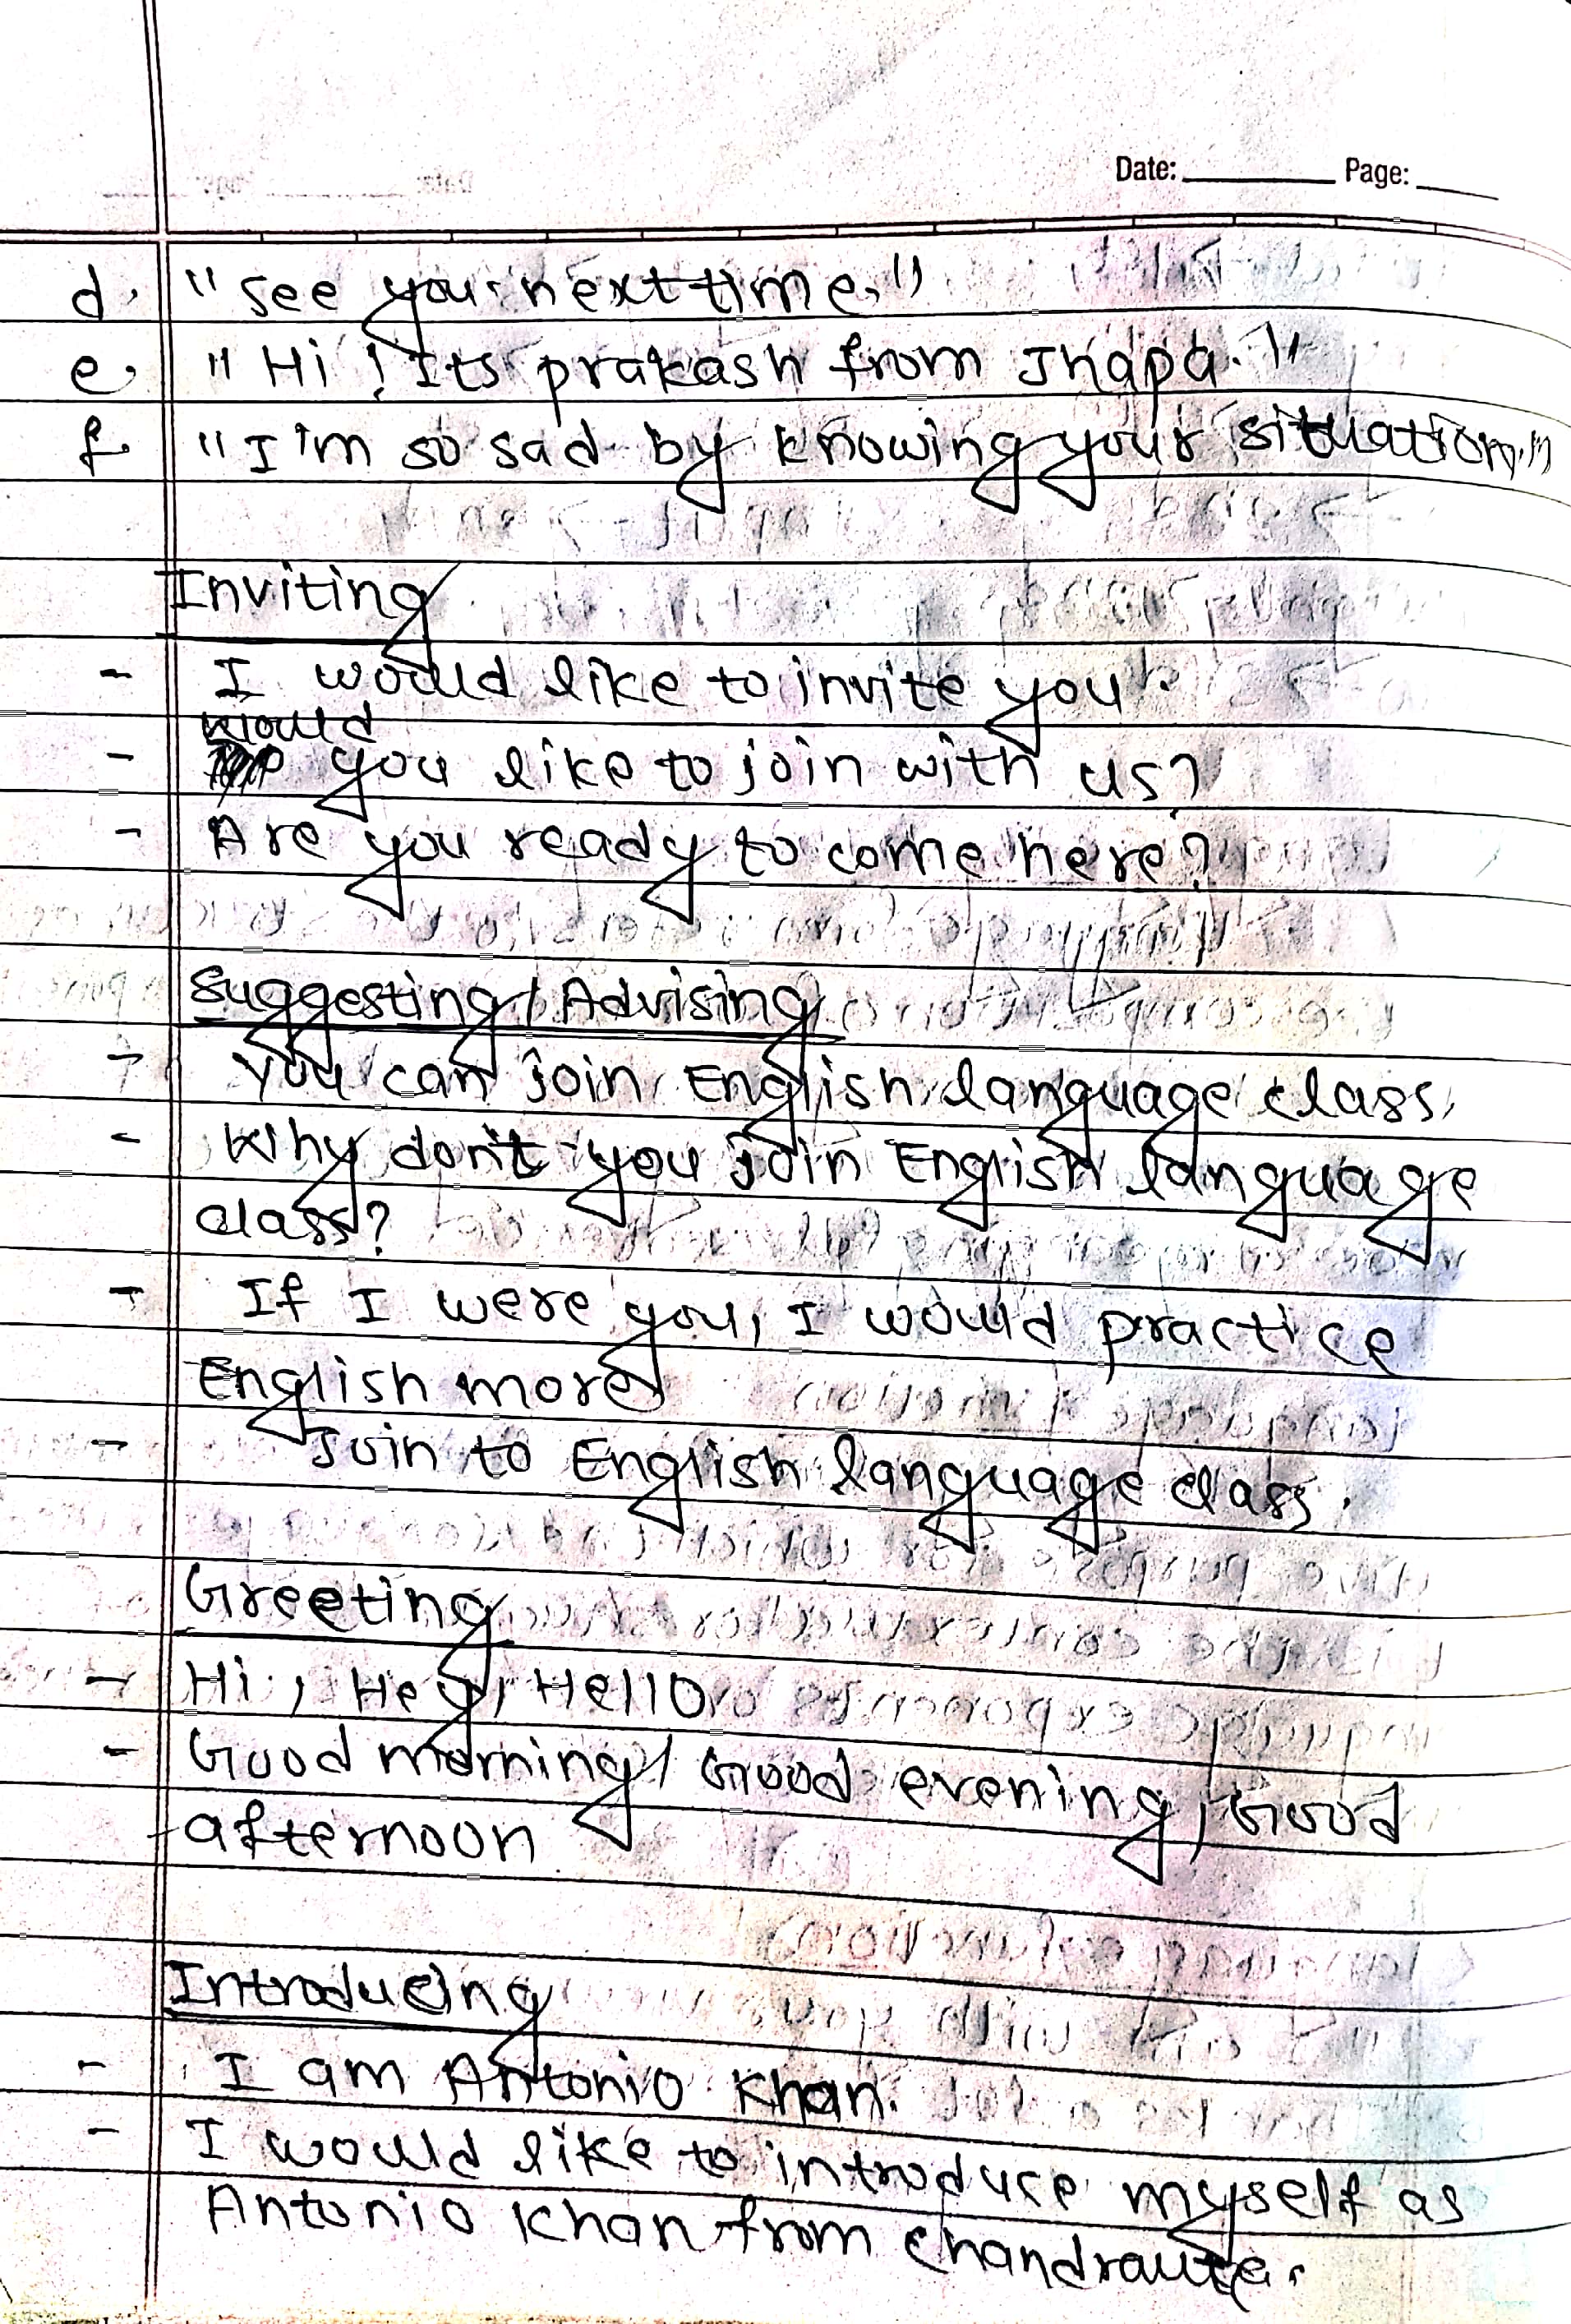 Date: Page:
d. "see you next time."
e. "Hi! Its prakash from Jhapa."
f. "I'm so sad by knowing your situation."
Inviting
- I would like to invite you.
would
- you like to join with us?
- Are you ready to come here?
Suggesting / Advising
- You can join English language class.
- Why don't you join English language
class?
- If I were you, I would practice
English more
- Join to English language class.
Greeting
- Hi, Hey, Hello
- Good morning / Good evening, Good
afternoon
Introducing
- I am Antonio Khan.
- I would like to introduce myself as
Antonio Khan from